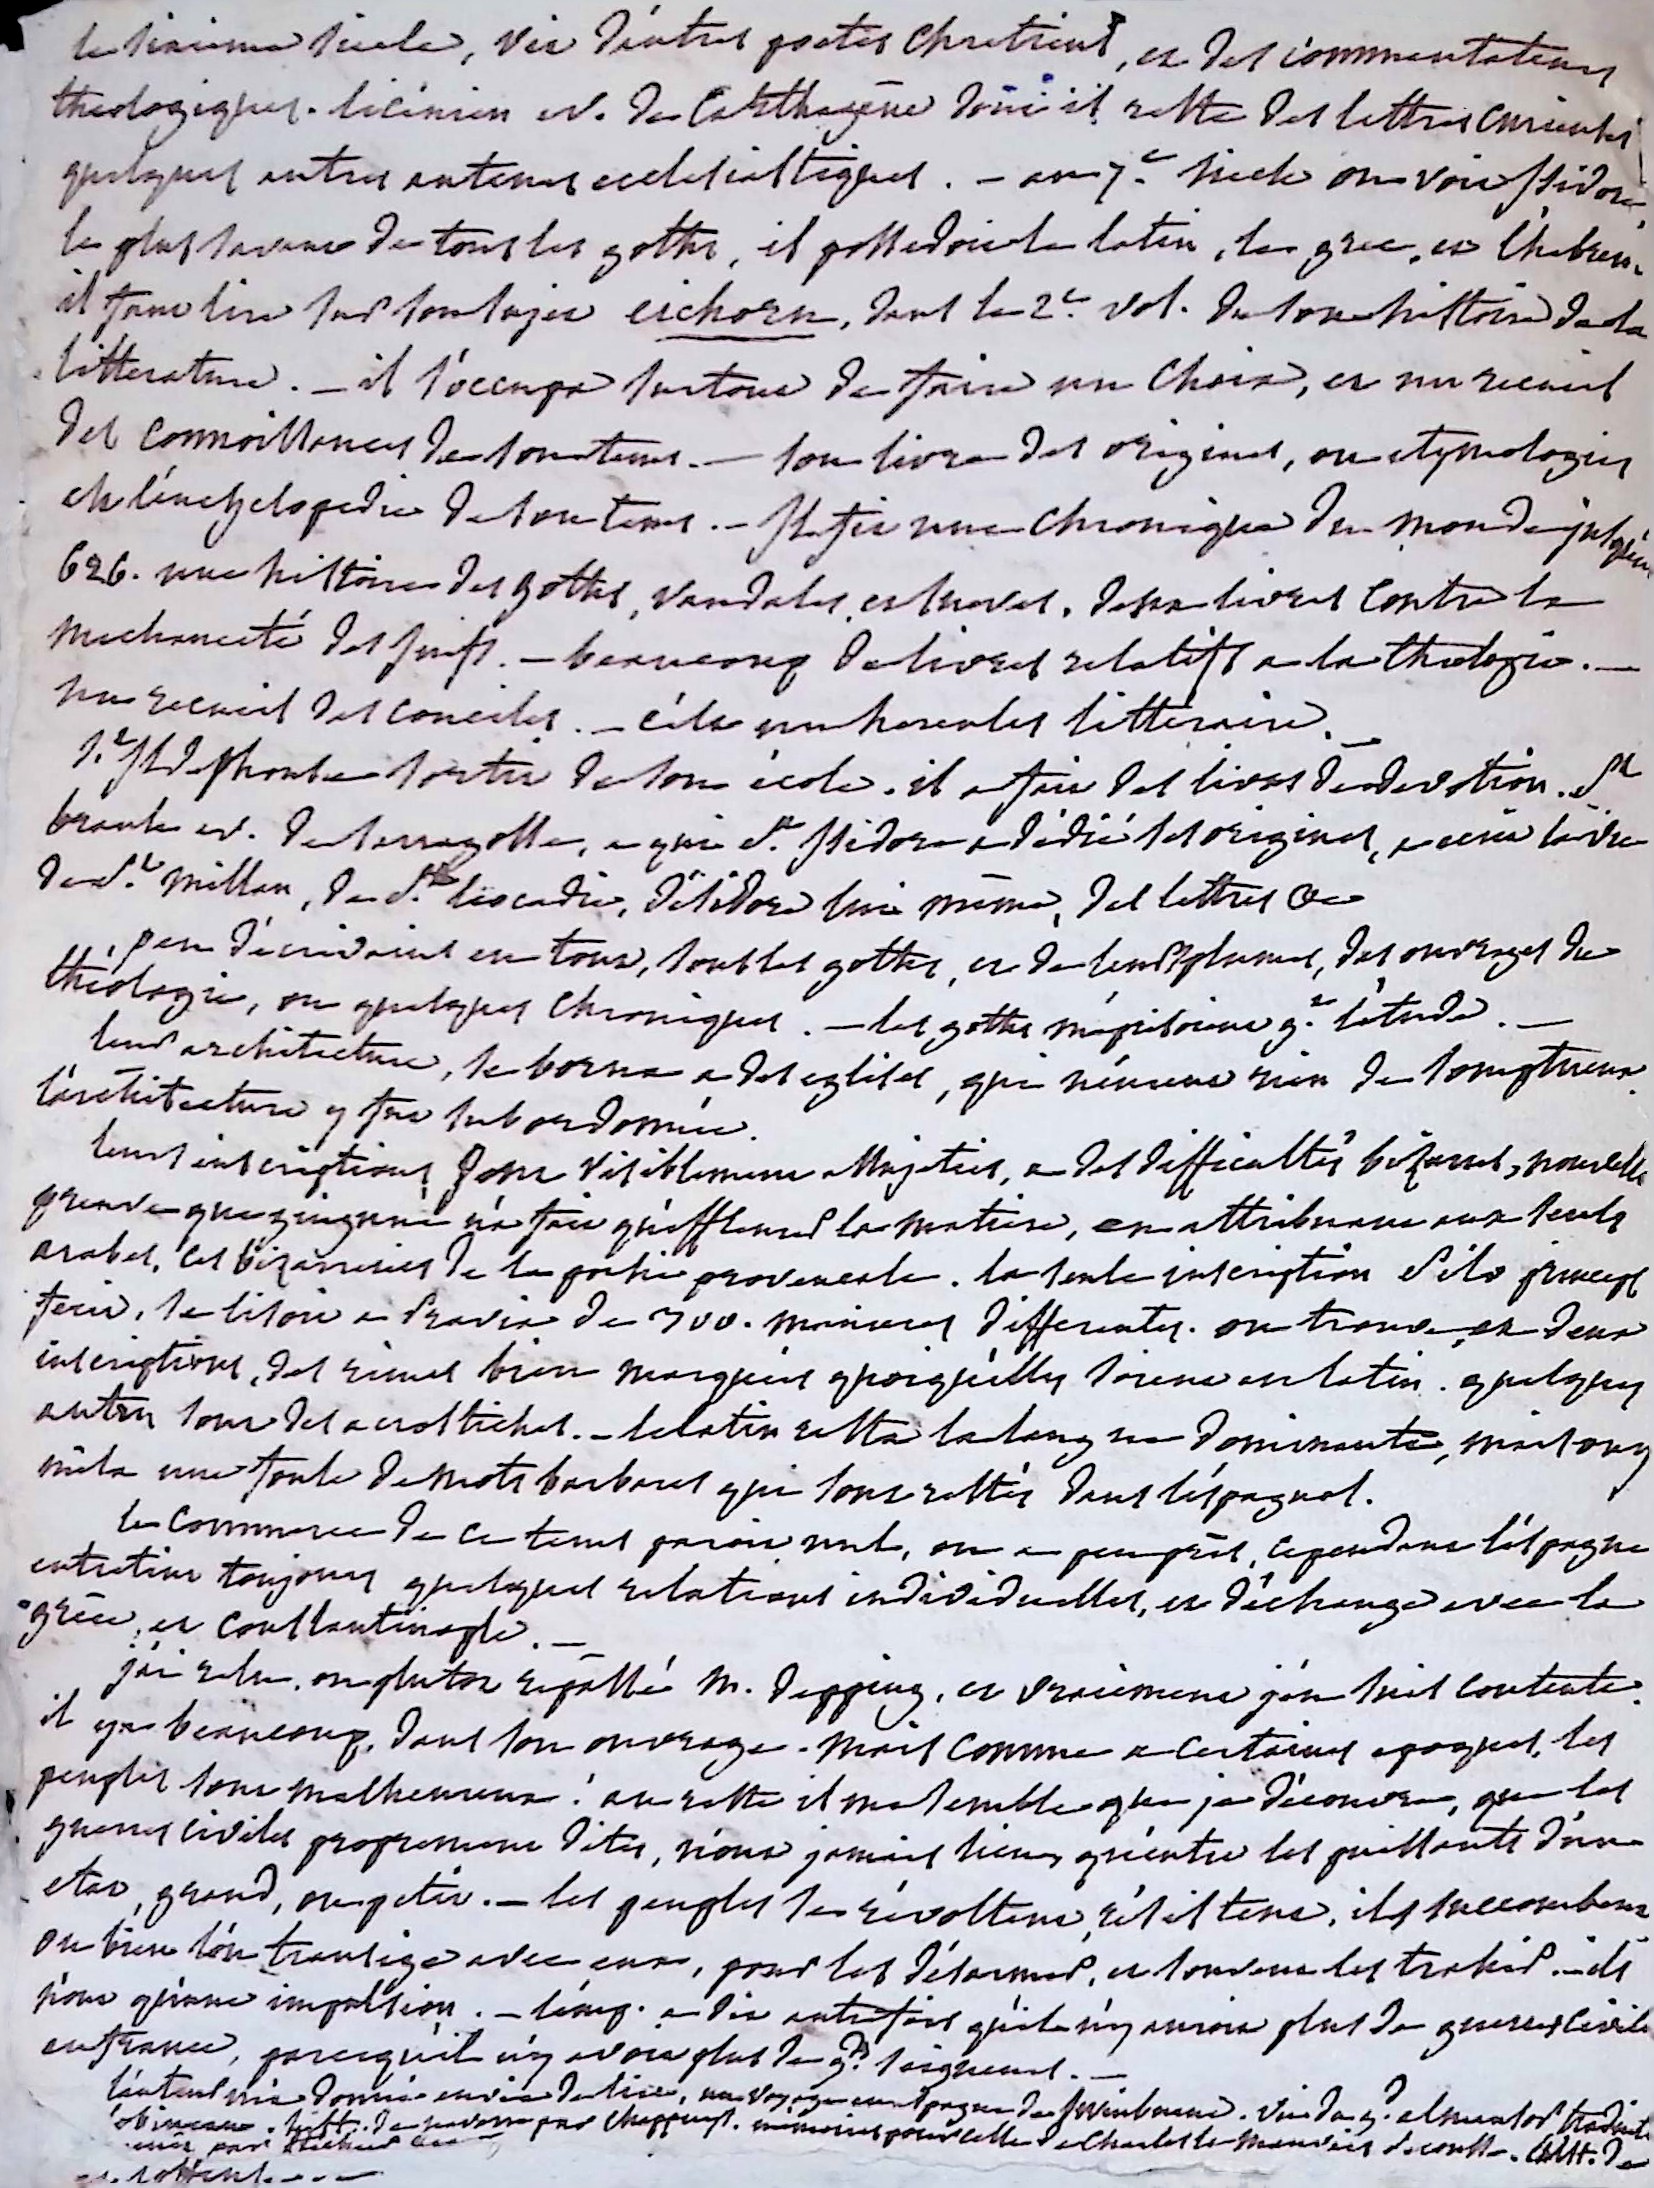 le sixieme siecle, vit d'autres poetes chretiens, et des commentateurs
theologiques. licinien ev. de Carthagêne dont il reste des lettres curieuses
quelques autres auteurs ecclesiastiques. - au 7.e siecle on voit Isidore,
le plus savant de tous les goths, il possedoit le latin, le grec, et l'hebreu.
il faut lire sur son sujet eichorn, dans le 2.e vol. de son histoire de la
litterature. - il s'occupa surtout de faire un choix, et un recueil
des connoissances de son tems. - son livre des origines, ou etymologies
est l'encyclopedie de son tems. - Il fit une chronique du monde jusqu'en
626. une histoire des goths, vandales, et sueves. deux livres contre la
mechanceté des juifs. - beaucoup de livres relatifs a la theologie. -
un recueil des conciles. - c'est un hercules littéraire. -
s.t Ildephonse sortit de son école. il a fait des livres de devotion. S.t
braule ev. de sarragosse, a qui s.t Isidore a dédié ses origines, a ecrit la vie
de S.t millan, de S.te leocadie, d'isidore lui même, des lettres &c
peu d'écrivains en tout, sous les goths, et de leurs plumes, des ouvrages de
théologie, ou quelques chroniques. - les goths méprisoient g.t l'étude. -
leur architecture, se borna a des eglises, qui n'eurent rien de somptueux.
l'architecture y fut subordonnée.
leurs inscriptions sont visiblement assujeties, a des difficultés bizarres, nouvelle
preuve que ginguené n'a fait qu'effleurer la matiere, en attribuant aux seuls
arabes, ces bizarreries de la poesie provencale. la seule inscription Silo princeps
fecit, se lisoit a Pravia de 300. manieres differentes. on trouve, en deux
inscriptions, des rimes bien marquées quoiqu'elles soient en latin. quelques
autres sont des acrostiches. - le latin resta la langue dominante, mais on y
mêla une foule de mots barbares qui sont restés dans l'espagnol.
le commerce de ce tems paroit nul, ou a peu près, cependant l'espagne
entretint toujours quelques relations individuelles, et d'échange avec la
grèce, et constantinople. -
j'ai relu, ou plutot repassé M. depping, et vraiment j'en suis contente.
il y a beaucoup, dans son ouvrage. mais comme a certaines epoques, les
peuples sont malheureux! au reste il me semble que je découvre, que les
guerres civiles proprement dites, n'ont jamais lieu, qu'entre les puissants d'un
etat, grand, ou petit. - les peuples se révoltent, résistent, ils succombent
ou bien l'on transige avec eux, pour les désarmer, et souvent les trahir. - ils
n'ont qu'une impulsion. - l'emp. a dit autrefois qu'il n'y auroit plus de guerres civiles
en france, parcequ'il n'y avoit plus de g.ds seigneurs. -
l'auteur m'a donné envie de lire, un voyage en espagne de swinburne. vie de g.d almansor traduite
hist. de navarre par Chappuys. mémoires pour celle de Charles le mauvais Secousse. hist. de
par